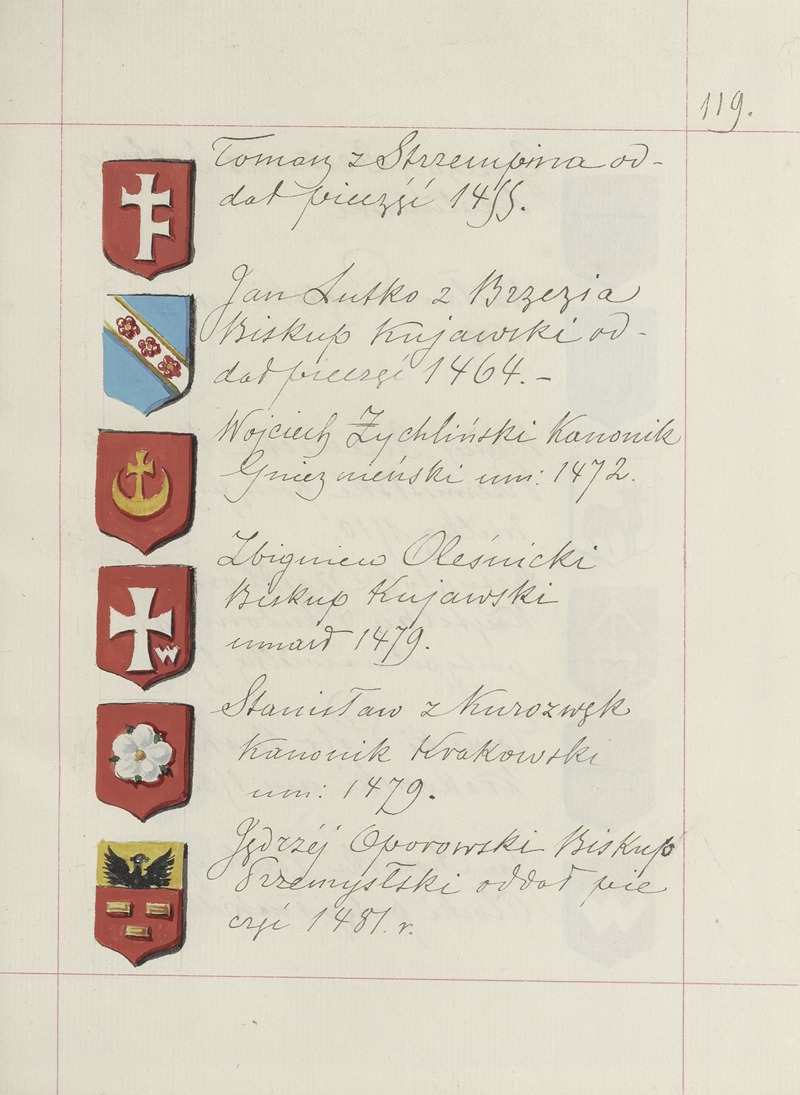 119.
Tomasz z Strzempina od-
dał pieczęć 1455.
Jan Lutko z Brzezia
Biskup Kujawski od-
dał pieczęć 1464.-
Wojciech Żychliński Kanonik
Gnieznieński um: 1472.
Zbigniew Oleśnicki
Biskup Kujawski
umarł 1479.
Stanisław z Kurozwęk
Kanonik Krakowski
um: 1479.
Jędrzéj Oporowski Biskup
Przemyslski oddał pie
częć 1481. r.
W